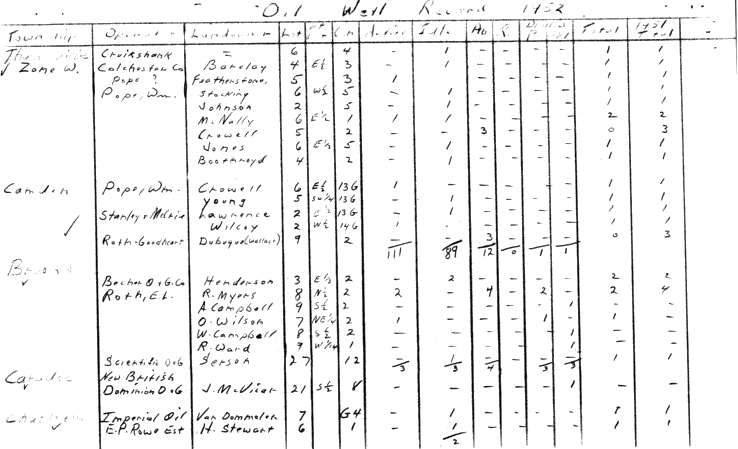 Oil Well Record 1952
Township Operator Landowner Lot Con Active Idle Ab Total 1951 Total
Cruikshank = 6 4 - 1 - - - - 1 1
Zone W. Colchester Co Barclay 4 E½ 3 - 1 - - - - 1 1
Pope ? Featherstone 5 3 1 - - - - - 1 1
Pope, Wm. Stocking 6 W½ 5 - 1 - - - - 1 1
Johnson 2 5 - 1 - - - - 1 1
McNally 6 E½ 1 1 1 - - - - 2 2
Crowell 5 2 - - 3 - - - 0 3
Jones 6 E½ 5 - 1 - - - - 1 1
Boothroyd 4 2 - 1 - - - - 1 1
Camden Pope, Wm. Crowell 6 E½ 13G 1 - - - - - 1 1
Young 5 13G - 1 - - - - 1 1
Stanley & McCrie Lawrence 2 E½ 13G - 1 - - - - 1 1
Wilcoy 2 W½ 14G 1 - - - - - 1 1
Roth-Goodheart Dubeque (Wallace) 9 2 - - 3 - - - 0 3
111 89 12 0 1 1
Brooke
Becher O & G. Co Henderson 3 E½ 2 - 2 - - - - 2 2
Roth, E.L. R. Myers 8 N½ 2 2 - 4 - 2 - 2 4
A Campbell 9 S½ 2 - - - - - 1 - -
O. Wilson 7 NE¼ 2 1 - - - 1 - 1 1
W. Campbell 8 S½ 2 - - - - - 1 - -
R. Ward 9 1 - - - - - 1 - -
Scientific O & G Serson 27 12 - 1 - - - - 1 1
3 3 4 3 3
Caradoc New British
Dominion O & G J. McVicar 21 S½ 8 - - - - - 1 - -
Imperial Oil Van Dommelen 7 G4 - 1 - - - - 1 1
E.P. Rowe Est H. Stewart 6 1 - 1 - - - - 1 1
2